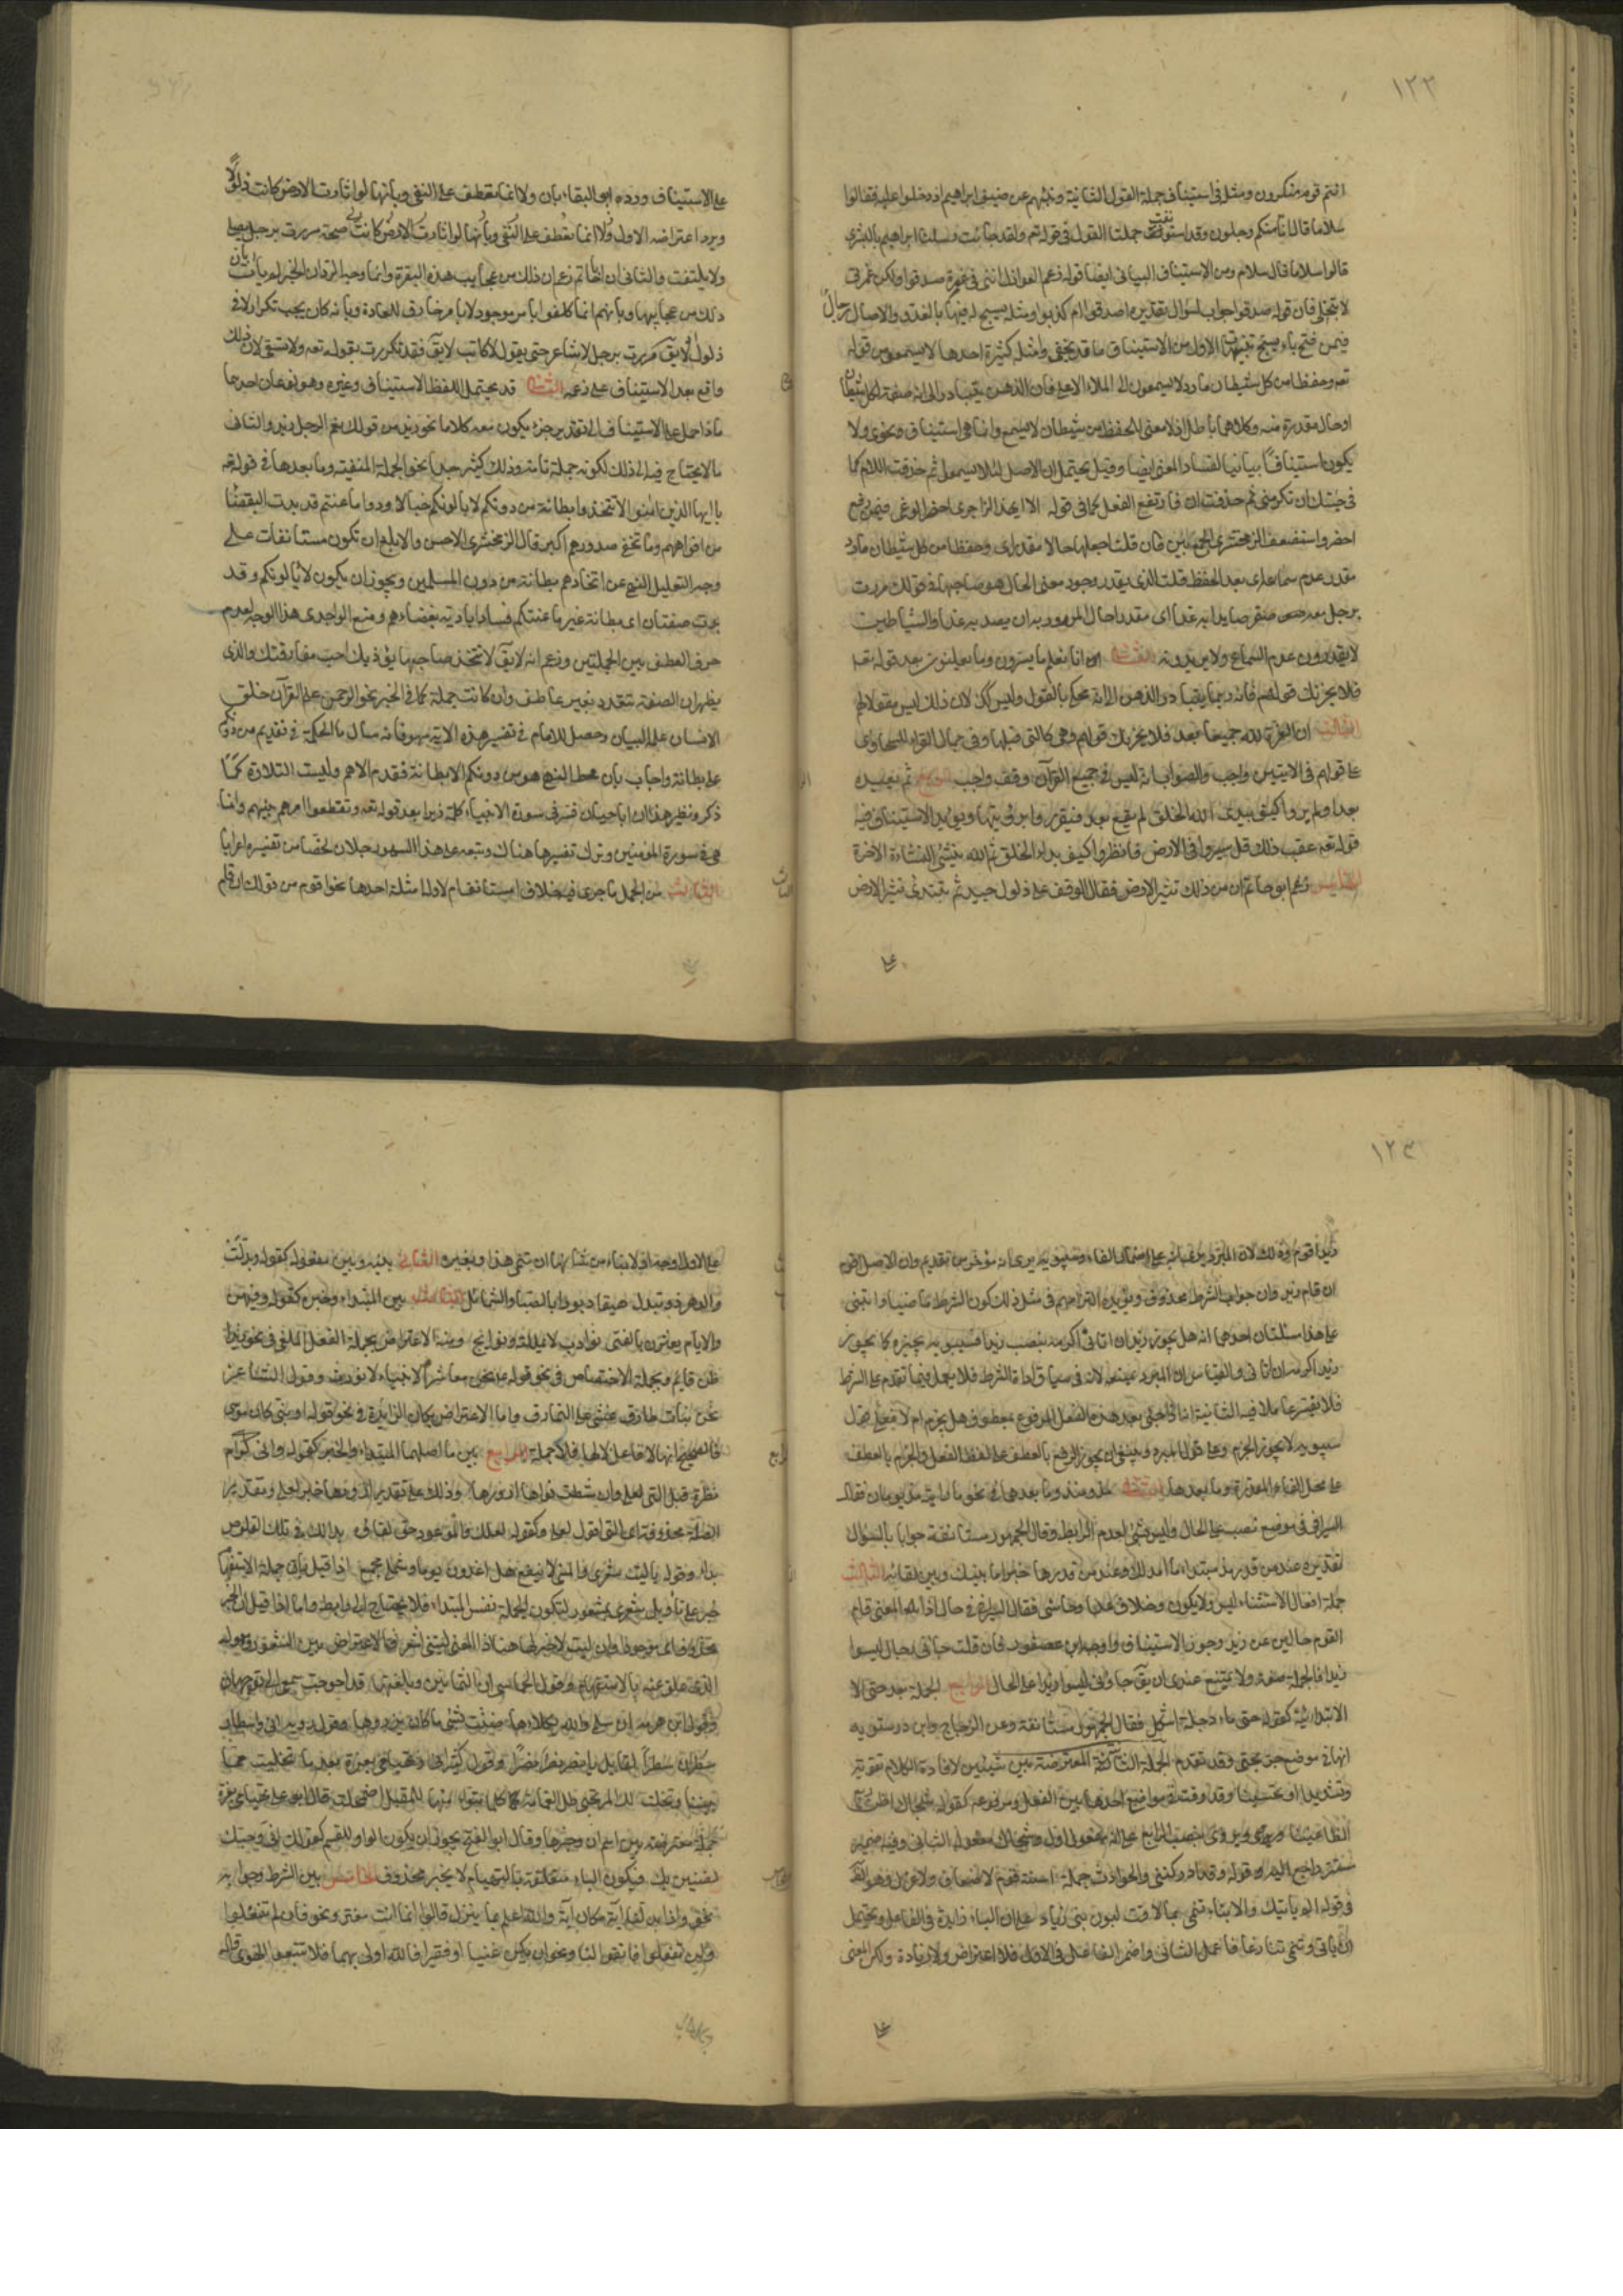 ١٢٣
انتم قوم منكرون ومثله في استيناف جملة القول الثانية ونبئهم عن ضيف ابراهيم اذ دخلوا عليه فقالوا
سلاما قال انا منكم وجلون وقد استونفت جملتا القول في قوله تعه ولقد جاءت رسلنا ابراهيم بالبشرى
قالوا سلاما قال سلام ومن الاستيناف البياني ايضا قوله زعم العواذل انني في غمرة صدقوا ولكن غمرتي
لا تنجلي فان قوله صدقوا جواب لسؤال تقديره اصدقوا ام كذبوا ومثله يسبح له فيها بالغدو والاصال رجال
فيمن فتح باء يسبح تنبيهات الاول من الاستيناف ما قد يخفى وامثلة كثيرة احدها لا يسمعون من قوله
تعه وحفظا من كل شيطان مارد لا يسمعون الى الملاء الاعلى فان الذهن يتبادر الى انه صفة لكل شيطان
او حال مقدرة منه وكلاهما باطل اذ لا معنى للحفظ من شيطان لا يسمع وانما هي استيناف نحوي ولا
يكون استينافا بيانيا لفساد المعنى ايضا وقيل يحتمل ان الاصل لئلا يسمعوا ثم حذفت اللام كما
في جئتك ان تكرمني ثم حذفت ان فارتفع الفعل كما في قوله الا ايهذا الزاجري احضر الوغى فيمن رفع
احضر واستضعف الزمخشري الجمع بين فان قلت اجعلها حالا مقدرة اى وحفظا من كل شيطان مارد
مقدر عدم سماعه اى بعد الحفظ قلت الذي يقدر وجود معنى الحال هو صاحبها في قولك مررت
برجل معه صقر صايدا به غدا اى مقدرا حال المرور به ان يصيد به غدا والشياطين
لا يقدرون عدم السماع ولا يريدونه الثاني انا نعلم ما يسرون وما يعلنون بعد قوله تعه
فلا يحزنك قولهم فانه ربما يتبادر الذهن الى انه محكي بالقول وليس كك لان ذلك ليس مقولا لهم
الثالث ان العزة لله جميعا بعد فلا يحزنك قولهم وهي كالتي قبلها وفي جمال القراء للسخاوى
ان قولهم في الايتين واجب والصواب انه ليس في جميع القرآن وقف واجب الرابع ثم يعيده
بعد اولم يروا كيف يبدئ الله الخلق لم يقع بعد فيقرر وابرؤيتها ويؤيد الاستيناف فيه
قوله تعه عقيب ذلك قل سيروا في الارض فانظروا كيف بداء الخلق ثم الله ينشئ النشاءة الاخرة
الخامس زعم ابو حاتم ان من ذلك تثير الارض فقال الوقف على ذلول جيد ثم تبتدئ تثير الارض
على الاستيناف ورده ابو البقاء بان ولا انما تعطف على النفي وبانها لو اثارت الارض كانت ذلولا
ويرد اعتراضه الاول
ولا يلتفت والثاني ان ابا حاتم زعم ان ذلك من عجايب هذه البقرة وانما وجه الرد ان الخبر لم يات بان
ذلك من عجايبها وبانهم انما كلفوا بامر موجود لا بامر خارق للعادة وبانه كان يجب تكرار لا في
ذلول اذ لا يق مررت برجل لا شاعر حتى يقول لا كاتب لا يق فقد تكررت بقوله تعه ولا تسقي لان ذلك
واقع بعد الاستيناف على زعمه التنبيه قد يحتمل اللفظ الاستيناف وغيره وهو نوعان احدهما
ما اذا حمل على الاستيناف الى تقدير جزء يكون معه كلاما نحو زيد من قولك نعم الرجل زيد والثاني
ما لا يحتاج فيه الى ذلك لكونه جملة تامة وذلك كثير جدا نحو الجملة المنفية وما بعدها في قوله تعه
يا ايها الذين امنوا لا تتخذوا بطانة من دونكم لا يالونكم خبالا ودوا ما عنتم قد بدت البغضاء
من افواههم وما تخفى صدورهم اكبر قال الزمخشري الاحسن والابلغ ان تكون مستانفات على
وجه التعليل للنهي عن اتخاذهم بطانة من دون المسلمين ويجوز ان يكون لا يالونكم وقد
بدت صفتان اى بطانة غير ما عنتكم فسادا بادية بغضاءهم ومنع الواحدى هذا الوجه لعدم
حرف العطف بين الجملتين وزعم انه لا يق لا تتخذ صاحبا يؤذيك احب مفارقتك والذي
يظهر ان الصفة تتعدد بغير عاطف وان كانت جملة كما في الخبر نحو الرحمن علم القرآن خلق
الانسان علمه البيان وحصل للامام في تفسير هذه الاية سهو فانه سال ما الحكمة في تقديم من دونكم
على بطانة واجاب بان محط النهي هو من دونكم لا بطانة فقدم الاهم وليست التلاوة كما
ذكر ونظير هذا ان ابا حيان فسر في سورة الانبياء كلمة زبرا بعد قوله تعه وتقطعوا امرهم بينهم وانما
هي في سورة المؤمنين وترك تفسيرها هناك وتبعه على هذا السهو رجلان لخصا من تفسيره اعرابا
الثالث من الجمل ما جرى فيه خلاف امستانف ام لا وله امثلة احدها نحو اقوم من قولك ان قام
١٢٤
زيد اقوم وذلك لان المبرد يرى انه على اضمار الفاء وسيبويه يرى انه مؤخر من تقديم وان الاصل اقوم
ان قام زيد وان جواب الشرط محذوف ويؤيده التزامهم في مثل ذلك كون الشرط ماضيا وينبني
على هذا مسئلتان احدهما انه هل يجوز زيدا ان اتاني اكرمه بنصب زيدا فسيبويه يجيزه كما يجوز
زيدا اكرمه ان اتاني والقياس ان المبرد يمنعه لانه في سياق اداة الشرط فلا يعمل فيما تقدم على الشرط
فلا يفسر عاملا فيه الثانية انه اذا جئ بعد هذا الفعل المرفوع بمعطوف هل يجزم ام لا فعلى قول
سيبويه لا يجوز الجزم وعلى قول المبرد ينبغي ان يجوز الرفع بالعطف على لفظ الفعل والجزم بالعطف
على محل الفاء المقدرة وما بعدها الثاني مذ ومنذ وما بعدهما في نحو ما رايته مذ يومان فقال
السيرافي في موضع نصب على الحال وليس بشئ لعدم الرابط وقال الجمهور مستانفة جوابا لسؤال
تقديره عند من قدر مذ مبتداء ما امد ذلك وعند من قدرها خبرا ما بينك وبين لقائه الثالث
جملة افعال الاستثناء ليس ولا يكون وخلا وعدا وحاشى فقال السيرافي حال اذ المعنى قام
القوم خالين عن زيد وجوز الاستيناف واوجبه ابن عصفور فان قلت جاءني رجال ليسوا
زيدا فالجملة صفة ولا يمتنع عندي ان يق جاؤني ليسوا زيدا على الحال الرابع الجملة بعد حتى الا
الابتدائية كقوله حتى ماء دجلة اشكل فقال الجمهور مستانفة وعن الزجاج وابن درستويه
انها في موضع جر بحتى وقد تقدم الجملة الثانية المعترضة بين شيئين لافادة الكلام تقوية
وتسديدا او تحسينا وقد وقعت في مواضع احدها بين الفعل ومرفوعه كقوله شجاك اظن ربع
الظاعنينا ويروى بنصب الربع على انه مفعول اول وشجاك مفعوله الثاني وفيه ضمير
مستتر راجع اليه وقوله وقد ادركتني والحوادث جملة اسنة قوم لا ضعاف ولا عزل وهو الظ
في قوله الم ياتيك والانباء تنمى بما لاقت لبون بني زياد على ان الباء زايدة في الفاعل ويحتمل
ان ياتي وتنمي تنازعا فاعمل الثاني واضمر الفاعل في الاول فلا اعتراض ولا زيادة ولكن المعنى
على الاول اوجه اذ الانباء من شانها ان تنمى هذا وبغيره الثاني بينه وبين مفعوله كقوله وبدلت
والدهر ذو تبدل هيفا دبورا بالصبا والشمائل الثالث بين المبتداء وخبره كقوله وفيهن
والايام يعثرن بالفتى نوادب لا يمللنه ونوايح ومنه الاعتراض بجملة الفعل الملغى في نحو زيد
ظن قايم وبجملة الاختصاص في نحو قوله ع نحن معاشر الانبياء لا نورث وقول الشاعر
نحن بنات طارق نمشي على النمارق واما الاعتراض بكان الزايدة في نحو قوله او نبي كان موسى
فالصحيح انها لا فاعل لها فلا جملة الرابع بين ما اصلهما المبتداء والخبر كقوله واني لرام
نظرة قبل التي لعلي وان شطت نواها ازورها وذلك على تقدير ازورها خبر لعلي وتقدير
الصلة محذوفة اى التي اقول لعلي وكقوله لعلك والموعود حق لقاؤه بدا لك في تلك القلوص
بداء وقوله يا ليت شعري والمنى لا ينفع هل اغدون يوما وامري مجمع اذا قيل بان جملة الاستفهام
خبر على تاويل شعري بمشعوري لتكون الجملة نفس المبتداء فلا يحتاج الى رابط واما اذا قيل ان الخبر
محذوف اى موجود او ان ليت لا خبر لها هنا اذ المعنى ليتني اشعر فالاعتراض بين الشعر ومعموله
الذي علق عنه بالاستفهام وقول الحماسي ان الثمانين وبلغتها قد احوجت سمعي الى ترجمان
وقول ابن هرمة ان سليمى والله يكلاءها ضنت بشئ ما كان يرزؤها وقول رؤبة اني واسطار
سطرن سطرا لقايل يا نصر نصر نصرا وقول كثير اني وتهيامي بعزة بعد ما تخليت مما
بيننا وتخلت لكالمرتجي ظل الغمامة كلما تبوا منها للمقيل اضمحلت قال ابو علي تهيامي بعزة
جملة معترضة بين اسم ان وخبرها وقال ابو الفتح يجوز ان يكون الواو للقسم كقولك اني وحبك
لضنين بك فيكون الباء متعلقة بالتهيام لا بخبر محذوف الخامس بين الشرط وجوابه
نحو واذا بدلنا آية مكان آية والله اعلم بما ينزل قالوا انما انت مفتر ونحو فان لم تفعلوا
ولن تفعلوا فاتقوا النار ونحو ان يكن غنيا او فقيرا فالله اولى بهما فلا تتبعوا الهوى قاله